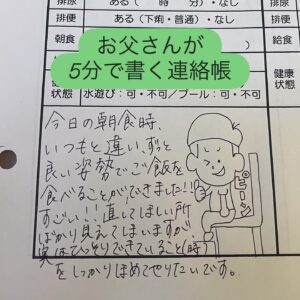 排尿 ある( 時 分)・なし 排尿
排便 ある(下痢・普通)・なし 排便
朝食 給食
お父さんが
5分で書く連絡帳
健康状態 水遊び:可・不可/プール:可・不可 健康状態
今日の朝食時、
いつもと違い、ずっと
良い姿勢でご飯を
食べることができました!!
すごい!!直してほしい所
ばかり見えてしまいますが、
実はひっそりできていること(時)
をしっかりほめてやりたいです。
ピーン